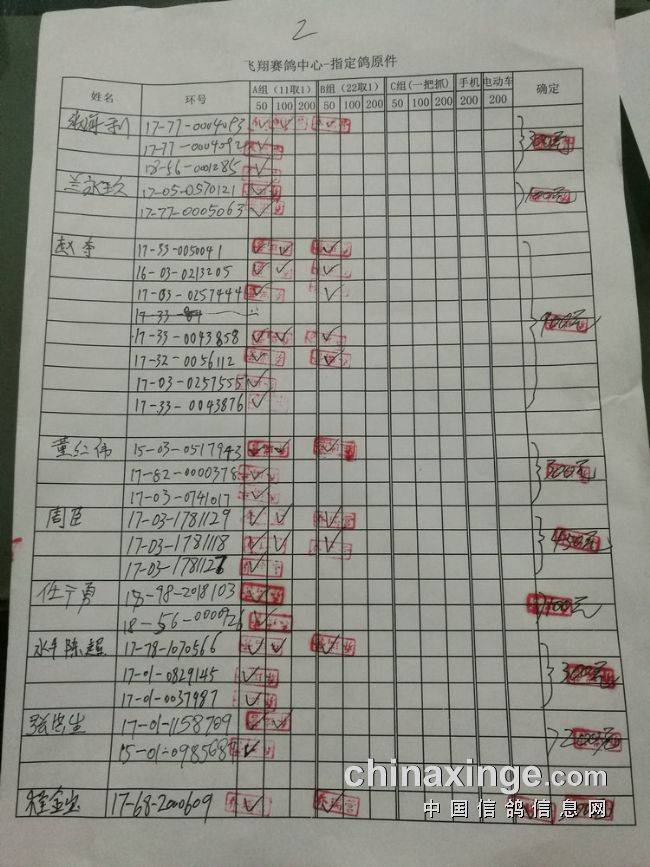 2
飞翔赛鸽中心-指定鸽原件
姓名 环号 A组(11取1) B组(22取1) C组(一把抓) 手机 电动车 确定
50 100 200 50 100 200 50 100 200 200 200
17-77-0004093
17-77-0004092
18-56-0001285
兰永 17-05-0570121
17-77-0005063
赵李 17-33-0050041
16-03-0213205
17-03-0257444
17-33-84
17-33-0043858
17-32-0056112
17-03-0257555
17-33-0043876
900元
董仁伟 15-03-0517943
17-82-0000378
17-03-0741017
300元
周臣 17-03-1781129
17-03-1781118
17-03-1781126
450元
任广勇 18-98-2018103
18-56-0000926
100元
水千陈超 17-78-1070566
17-01-0829145
17-01-0037987
300元
张忠生 17-01-1158709
15-01-0985687
200元
程金宝 17-68-2000609
chinaxinge.com
中国信鸽信息网